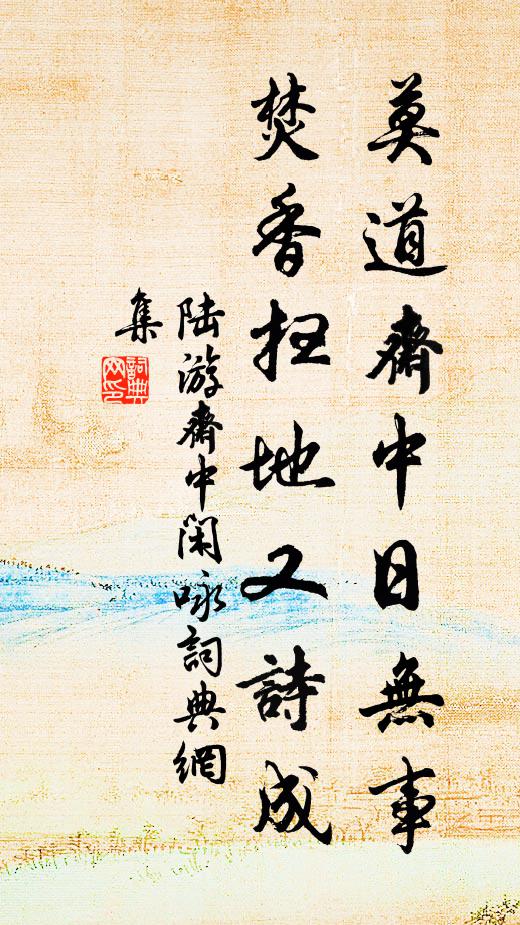 莫道齋中日無事
焚香扫地又詩成
陆游齋中閑咏詞典網
集
詞典
网印